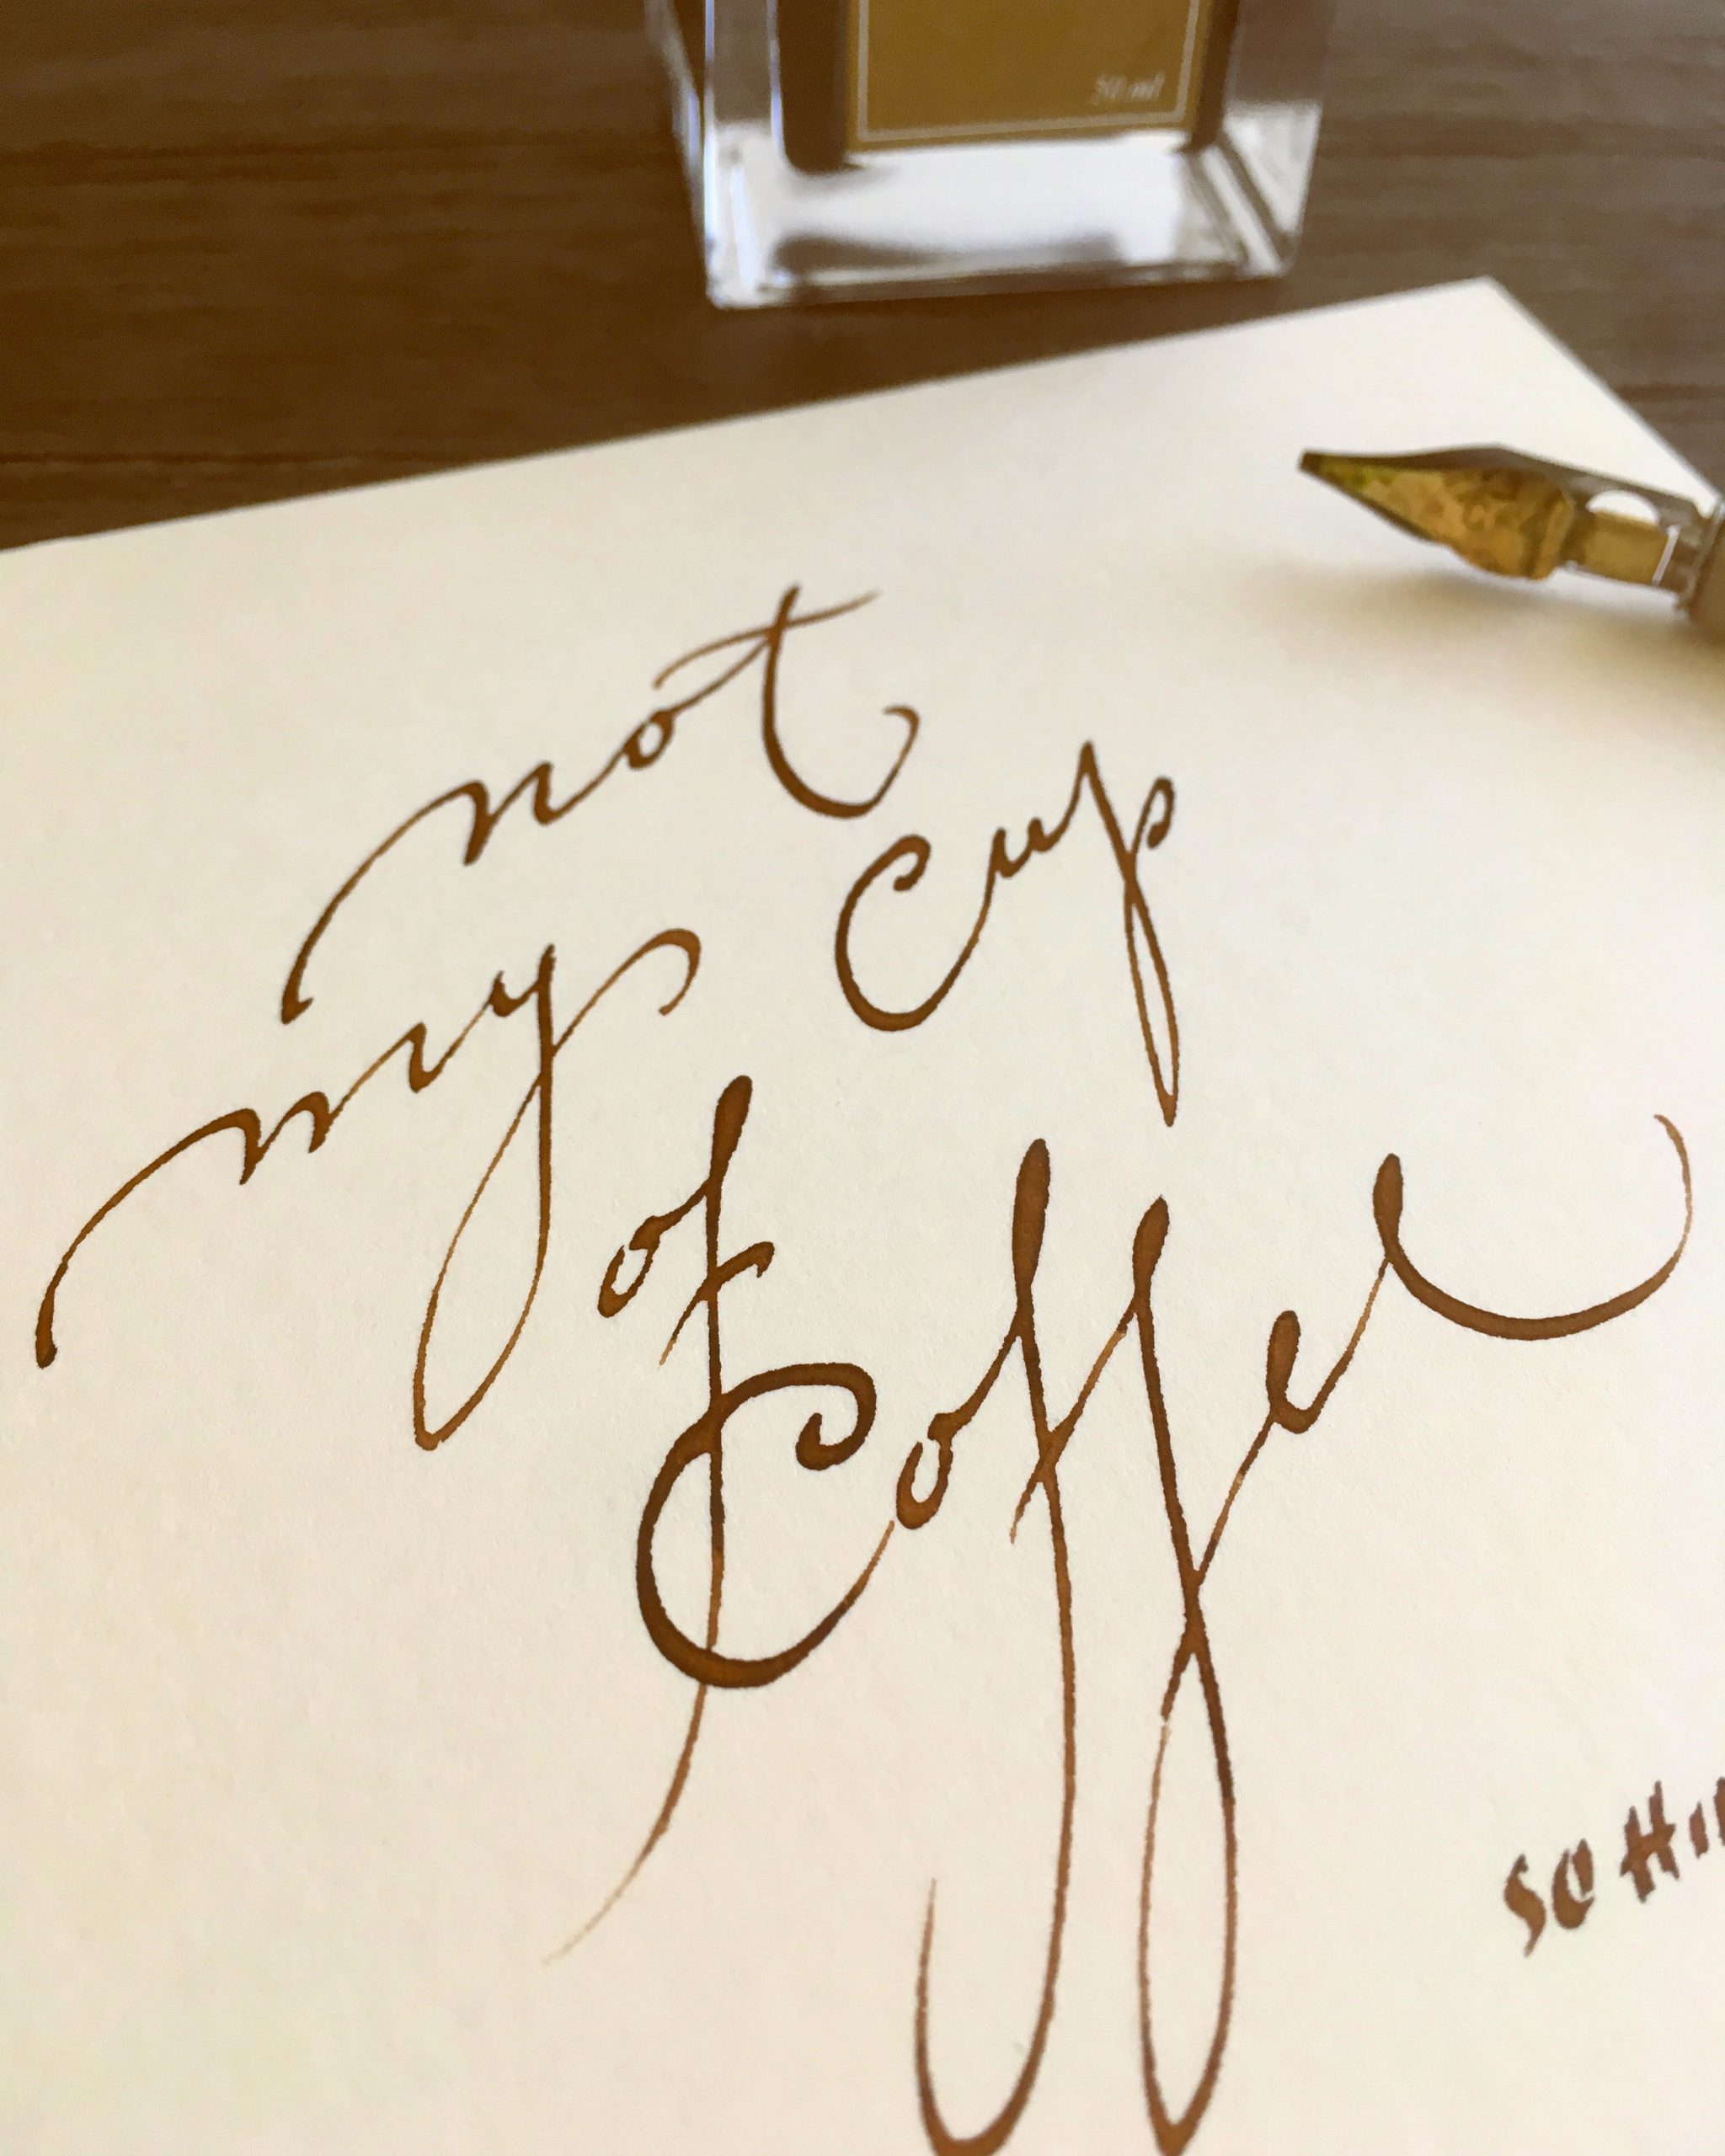 50 ml
not
my cup
of
Coffee